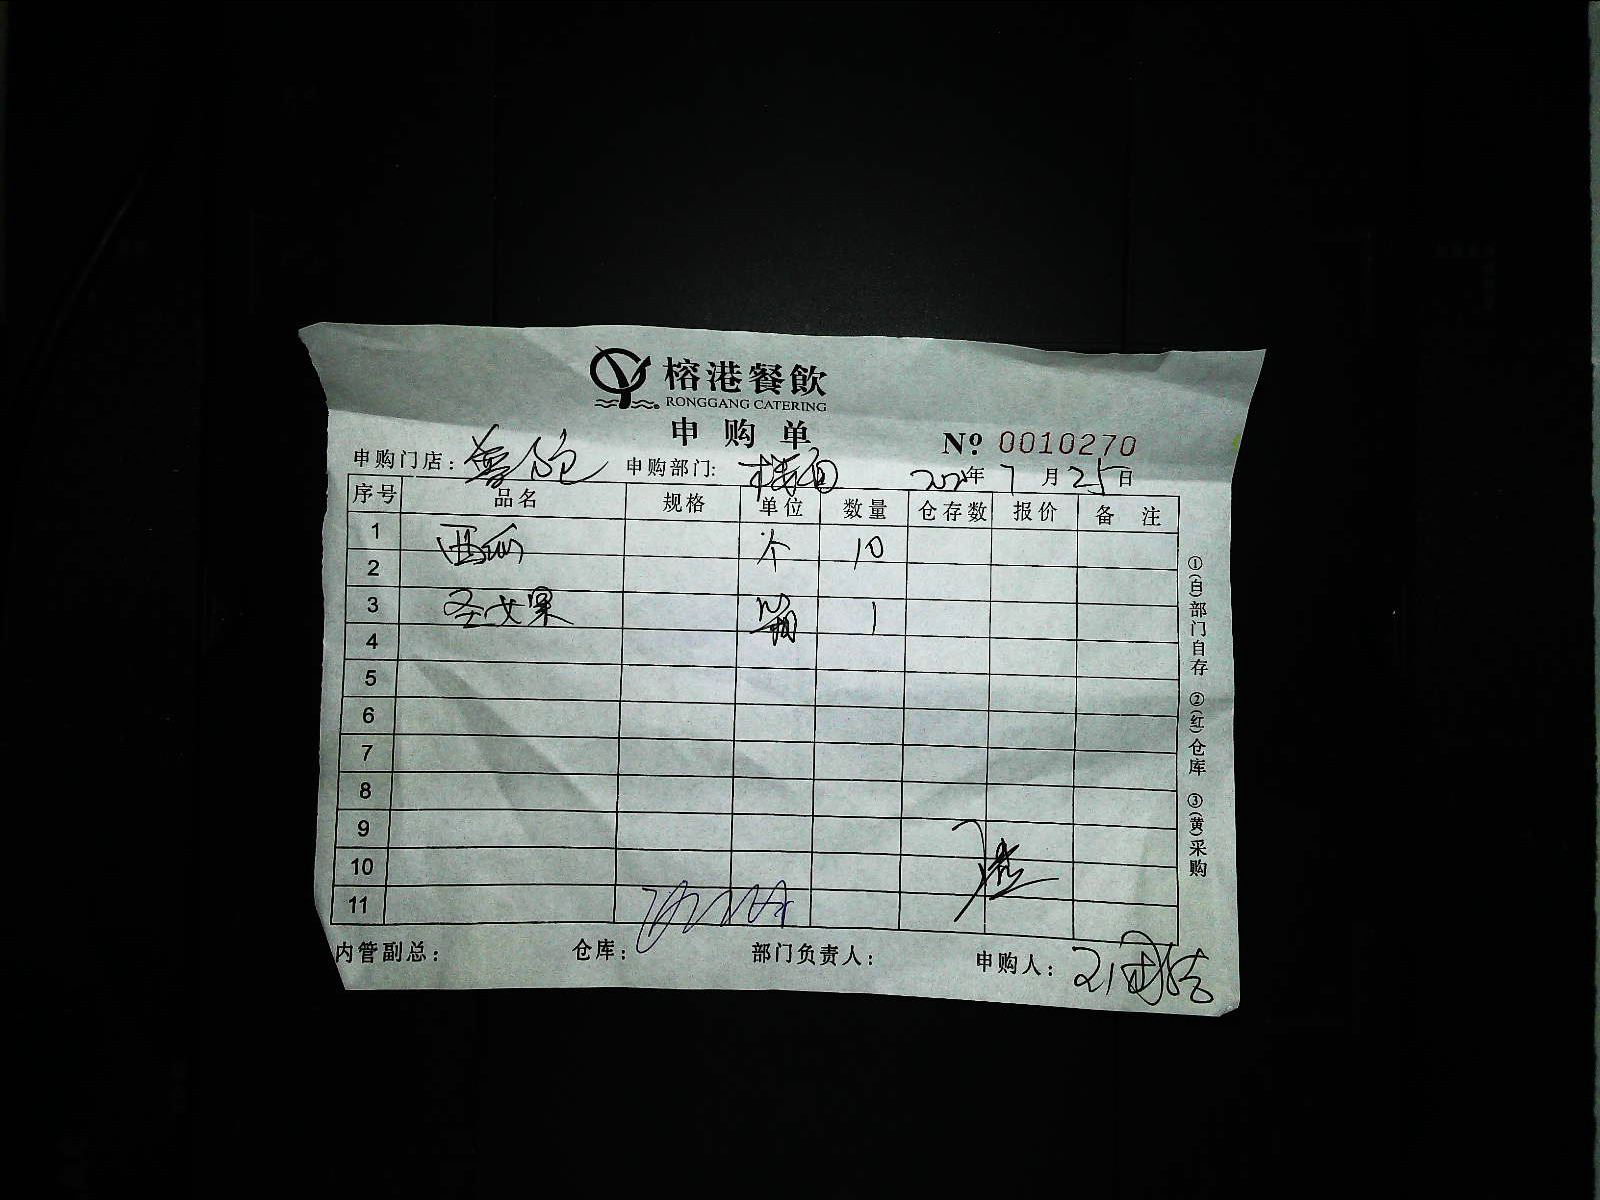 榕港餐飲
RONGGANG CATERING
申购单
№ 0010270
申购门店: 申购部门: 楼面 年 7 月 25 日
序号 品名 规格 单位 数量 仓存数 报价 备 注
1 西瓜 个 10
2
3 圣女果 箱 1
4
5
6
7
8
9
10
11
内管副总: 仓库: 部门负责人: 申购人:
①(白)部门自存 ②(红)仓库 ③(黄)采购